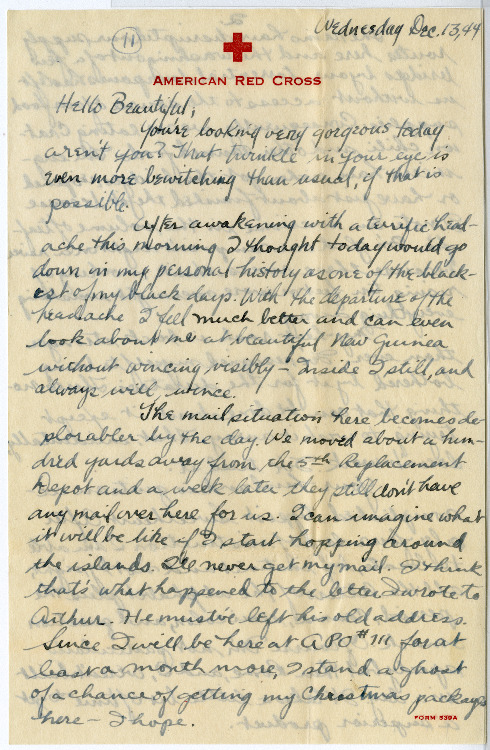 Wednesday Dec. 13, 44
11
AMERICAN RED CROSS
Hello Beautiful;
You're looking very gorgeous today
aren't you? That twinkle in your eye is
even more bewitching than usual, if that is
possible.
After awakening with a terrific head-
ache this morning I thought today would go
down in my personal history as one of the black-
est of my black days. With the departure of the
headache I feel much better and can even
look about me at beautiful New Guinea
without wincing visibly – Inside I still, and
always will, wince.
The mail situation here becomes de-
plorabler by the day. We moved about a hun-
dred yards away from the 5th Replacement
Depot and a week later they still don't have
any mail over here for us. I can imagine what
it will be like if I start hopping around
the islands. I'll never get my mail. I think
that's what happened to the letter I wrote to
Arthur. He must've left his old address.
Since I will be here at APO #111 for at
least a month more, I stand a ghost
of a chance of getting my Christmas packages
here – I hope.
FORM 539A